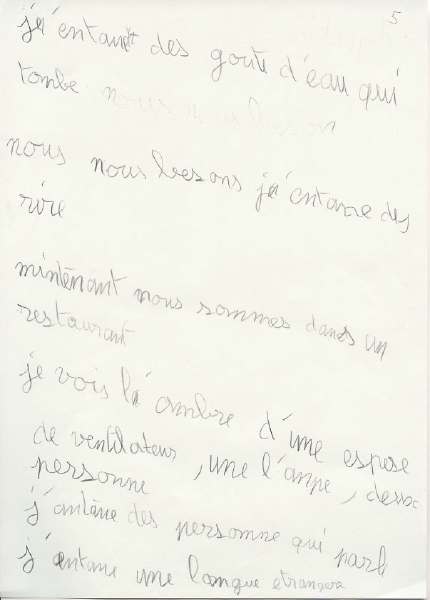 5
j'é entant des goute d'eau qui
tombe nous nous beson
nous nous besons jé entane des
rire
mintenant nous sommes dans un
restaurant
je vois l'ambre d'une espese
de ventilateur , une l'ampe , des
personne
j'antane des personne qui parle
j'antane une langue etrangere